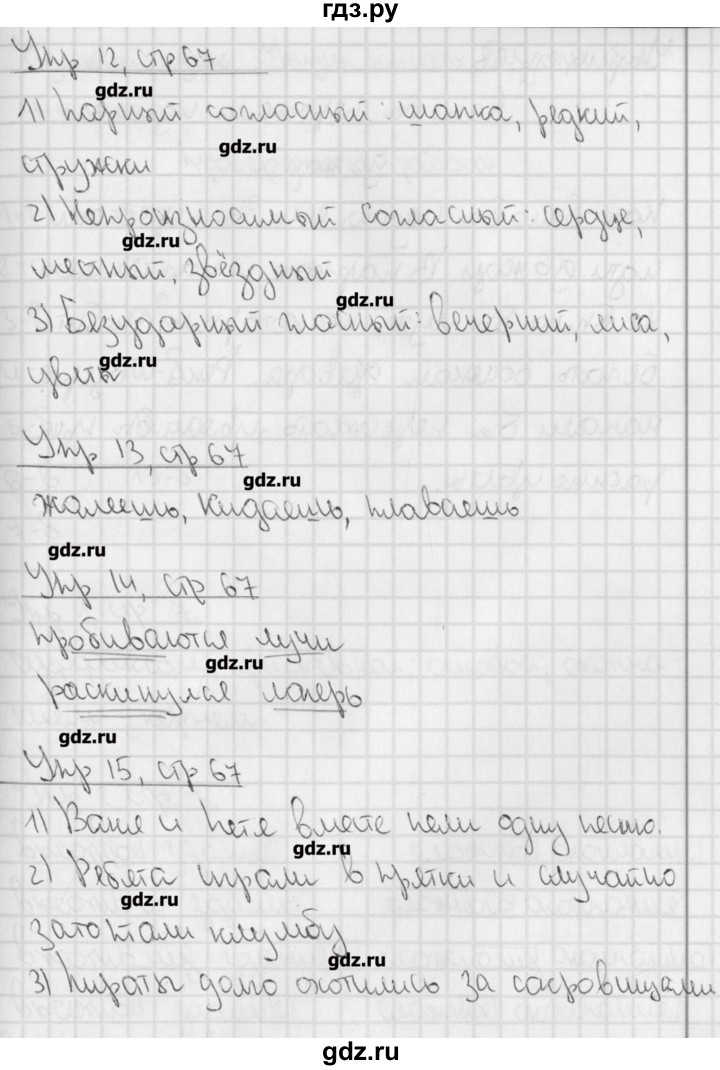 гдз.ру
Упр 12, стр 67
gdz.ru
1) Парный согласный: шапка, редкий,
gdz.ru
стружки
2) Непроизносимый согласный: сердце,
gdz.ru
местный, звёздный
gdz.ru
3) Безударный гласный: вечерний, лиса,
gdz.ru
цветы
Упр 13, стр 67
gdz.ru
жалеешь, кидаешь, плаваешь
gdz.ru
Упр 14, стр 67
пробиваются лучи
gdz.ru
раскинулся лагерь
gdz.ru
Упр 15, стр 67
1) Ваня и Петя вместе пели одну песню.
gdz.ru
2) Ребята играли в прятки и случайно
gdz.ru
затоптали клумбу
gdz.ru
3) Пираты долго охотились за сокровищами
gdz.ru